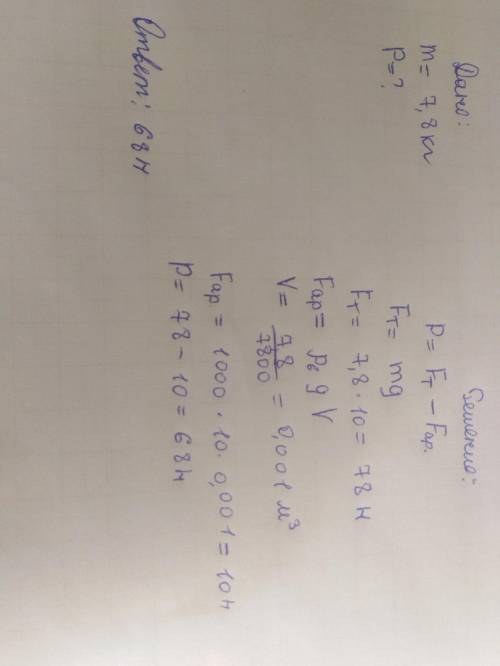 Дано:
m = 7,8 кг
P = ?
Решение:
P = Fт - Fар.
Fт = mg
Fт = 7,8 · 10 = 78 Н
Fар = ρв g V
V = 7,8 / 7800 = 0,001 м³
Fар = 1000 · 10 · 0,001 = 10 Н
P = 78 - 10 = 68 Н
Ответ: 68 Н